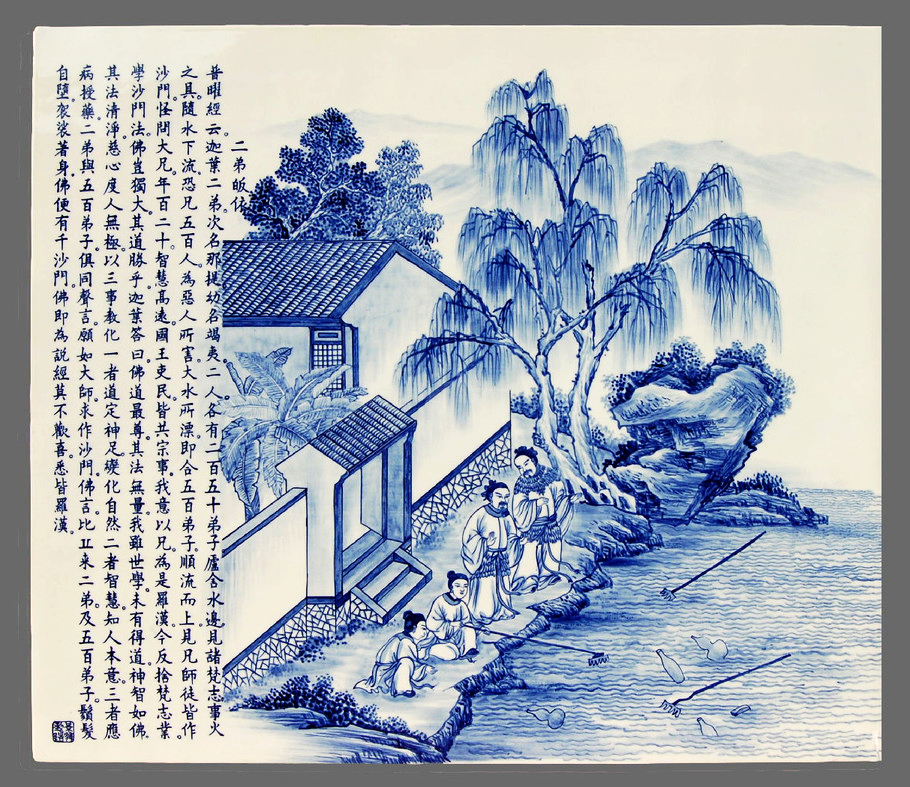 二弟皈依
普曜經云。迦葉二弟。次名那提。幼名竭夷。二人各有二百五十弟子。廬舍水邊。見諸梵志事火
之具。隨水下流。恐兄五百人為惡人所害。大水所漂。即合五百弟子。順流而上。見兄師徒皆作
沙門。怪問大兄。年百二十。智慧高遠。國王吏民。皆共宗事。我意以兄為是羅漢。今反捨梵志業。
學沙門法。佛豈獨大。其道勝乎。迦葉答曰。佛道最尊。其法無量。我雖世學。未有得道神智如佛。
其法清淨。慈心度人無極。以三事教化。一者道定神足。變化自然。二者智慧。知人本意。三者應
病授藥。二弟與五百弟子。俱同聲言。願如大師。求作沙門。佛言比丘來。二弟及五百弟子。鬚髮
自墮。袈裟著身。佛便有千沙門。佛即為說經。莫不歡喜。悉皆羅漢。